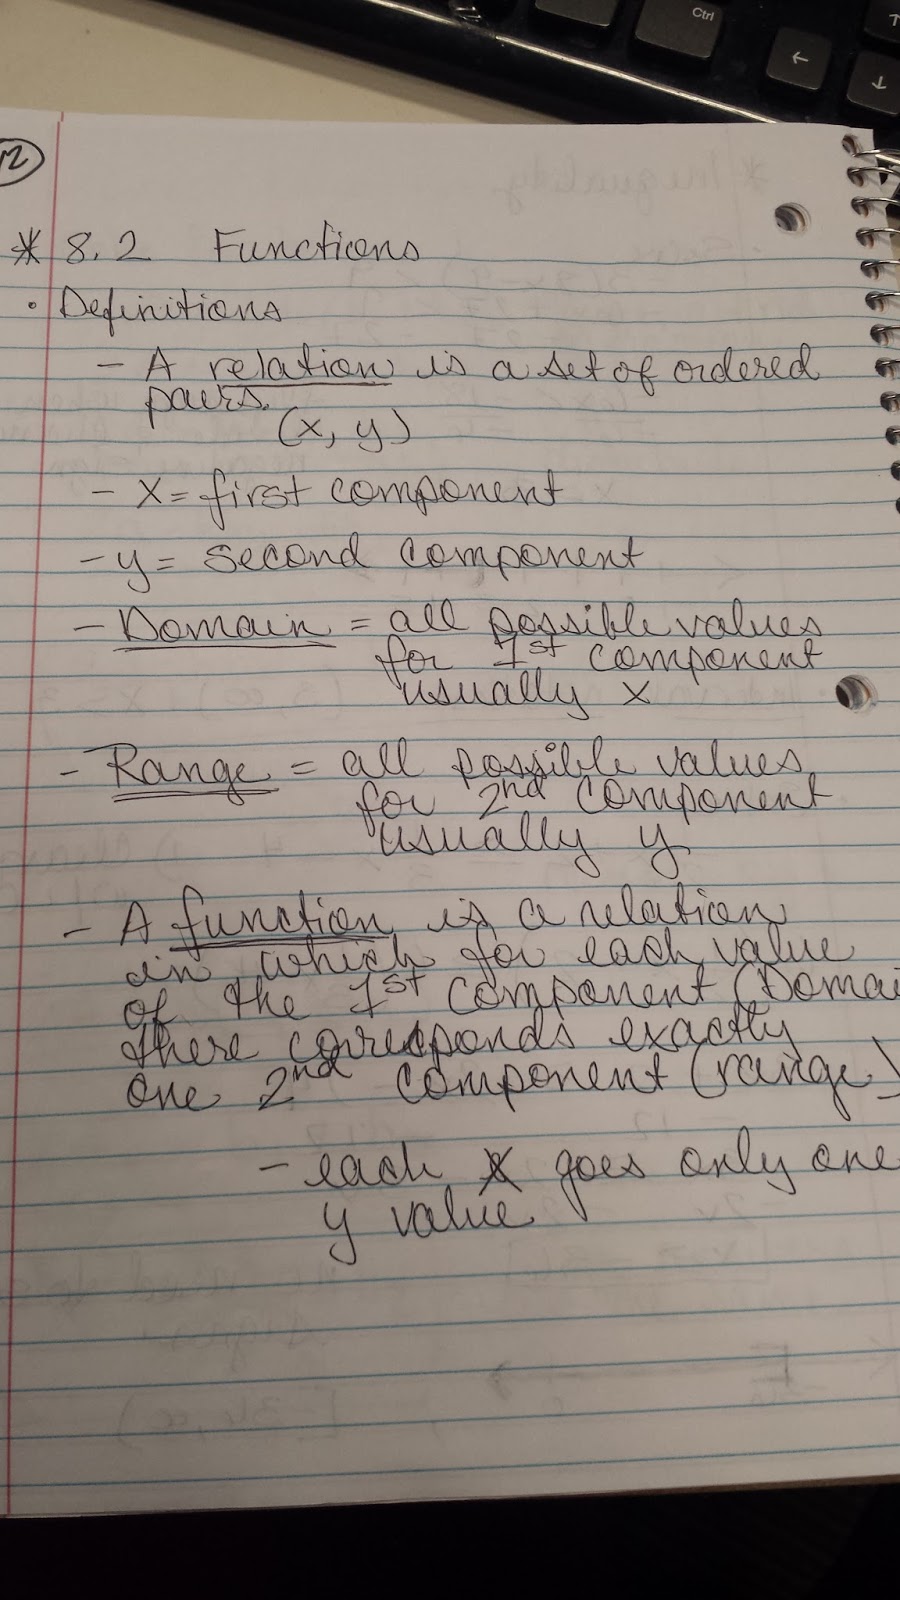 Ctrl
←
↓
12
* 8.2 Functions
• Definitions
- A relation is a set of ordered
pairs.
(x, y)
- X = first component
- y = second component
- Domain = all possible values
for 1st component
usually x
- Range = all possible values
for 2nd component
usually y
- A function is a relation
in which for each value
of the 1st component (Domai
there corresponds exactly
one 2nd component (range)
- each x goes only one
y value